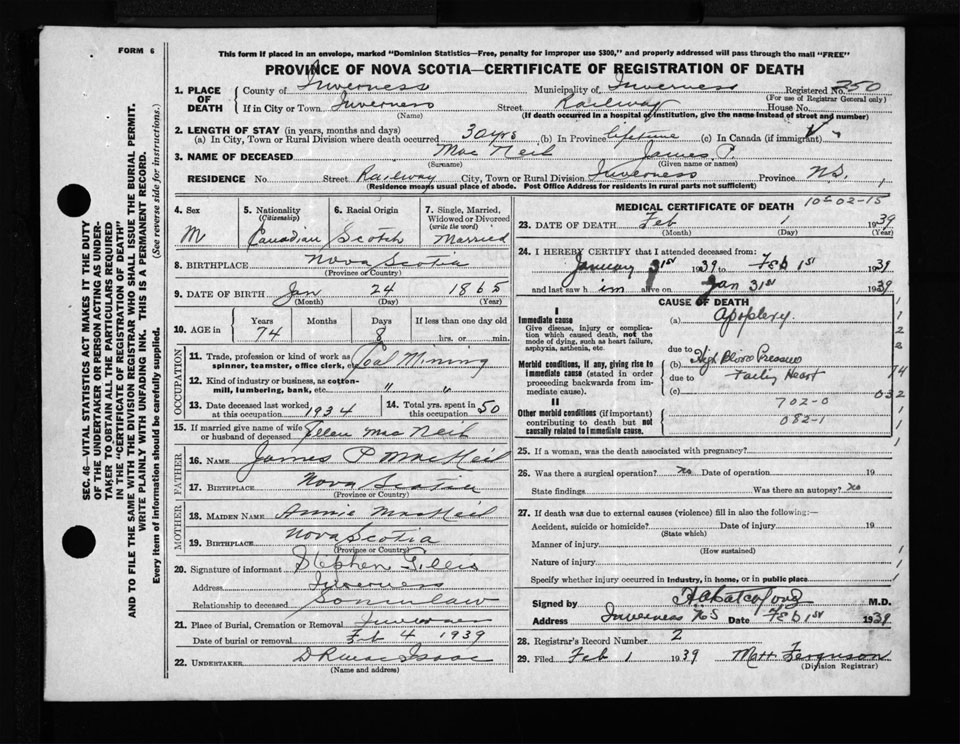 FORM 6
This form if placed in an envelope, marked "Dominion Statistics—Free, penalty for improper use $300," and properly addressed will pass through the mail "FREE"
PROVINCE OF NOVA SCOTIA—CERTIFICATE OF REGISTRATION OF DEATH
1. PLACE OF DEATH County of Inverness Municipality of Inverness Registered No. 250
(For use of Registrar General only)
If in City or Town Inverness Street Railway House No.
(Name) (If death occurred in a hospital or institution, give the name instead of street and number)
2. LENGTH OF STAY (in years, months and days)
(a) In City, Town or Rural Division where death occurred 30 yrs (b) In Province lifetime (c) In Canada (if immigrant)
3. NAME OF DECEASED Mac Neil James P.
(Surname) (Given name or names)
RESIDENCE No. Street Railway City, Town or Rural Division Inverness Province N.S.
(Residence means usual place of abode. Post Office Address for residents in rural parts not sufficient)
4. Sex
M
5. Nationality
(Citizenship)
Canadian
6. Racial Origin
Scotch
7. Single, Married, Widowed or Divorced
(write the word)
Married
8. BIRTHPLACE Nova Scotia
(Province or Country)
9. DATE OF BIRTH Jan 24 1865
(Month) (Day) (Year)
10. AGE in Years Months Days If less than one day old
74 8 hrs. or min.
OCCUPATION
11. Trade, profession or kind of work as spinner, teamster, office clerk, etc. Coal Mining
12. Kind of industry or business, as cotton-mill, lumbering, bank, etc. " "
13. Date deceased last worked at this occupation 1934
14. Total yrs. spent in this occupation 50
15. If married give name of wife or husband of deceased Ellen Mac Neil
FATHER
16. NAME James P MacNeil
17. BIRTHPLACE Nova Scotia
(Province or Country)
MOTHER
18. MAIDEN NAME Annie MacNeil
19. BIRTHPLACE Nova Scotia
(Province or Country)
20. Signature of informant Stephen Gillis
Address Inverness
Relationship to deceased Son in law
21. Place of Burial, Cremation or Removal Inverness
Date of burial or removal Feb 4 1939
22. UNDERTAKER D R Mac Isaac
(Name and address)
MEDICAL CERTIFICATE OF DEATH 10602-15
23. DATE OF DEATH Feb 1 1939
(Month) (Day) (Year)
24. I HEREBY CERTIFY that I attended deceased from:
January 31st 1939 to Feb 1st 1939
and last saw him alive on Jan 31st 1939
CAUSE OF DEATH
I
Immediate cause
Give disease, injury or complication which caused death, not the mode of dying, such as heart failure, asphyxia, asthenia, etc.
(a) Apoplexy
due to
Morbid conditions, if any, giving rise to immediate cause (stated in order proceeding backwards from immediate cause).
(b) High Blood Pressure
due to Failing Heart
(c)
II
Other morbid conditions (if important) contributing to death but not causally related to immediate cause.
702-0
082-1
25. If a woman, was the death associated with pregnancy?
26. Was there a surgical operation? No Date of operation 19
State findings Was there an autopsy? No
27. If death was due to external causes (violence) fill in also the following:—
Accident, suicide or homicide? Date of injury 19
(State which)
Manner of injury
(How sustained)
Nature of injury
Specify whether injury occurred in industry, in home, or in public place
Signed by M.D.
Address Inverness NS Date Feb 1st 1939
28. Registrar's Record Number 2
29. Filed Feb 1 1939 Matt Ferguson
(Division Registrar)
SEC. 46—VITAL STATISTICS ACT MAKES IT THE DUTY
OF THE UNDERTAKER OR PERSON ACTING AS UNDER-
TAKER TO OBTAIN ALL THE PARTICULARS REQUIRED
IN THE "CERTIFICATE OF REGISTRATION OF DEATH"
AND TO FILE THE SAME WITH THE DIVISION REGISTRAR WHO SHALL ISSUE THE BURIAL PERMIT.
WRITE PLAINLY WITH UNFADING INK. THIS IS A PERMANENT RECORD.
Every item of information should be carefully supplied. (See reverse side for instructions.)